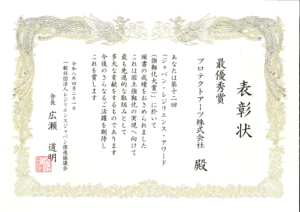 表彰状
最優秀賞
プロテクトアーツ株式会社
殿
あなたは第十二回
「ジャパン・レジリエンス・アワード
(強靭化大賞)」に於いて
頭書の成績をおさめられました
これは国土強靭化の実現へ向けて
最も先進的な取組みとして
多大な貢献をするものであります
今後のさらなるご活躍を期待し
これを賞します
令和八年四月二十一日
一般社団法人レジリエンスジャパン推進協議会
会長 広瀬 道明